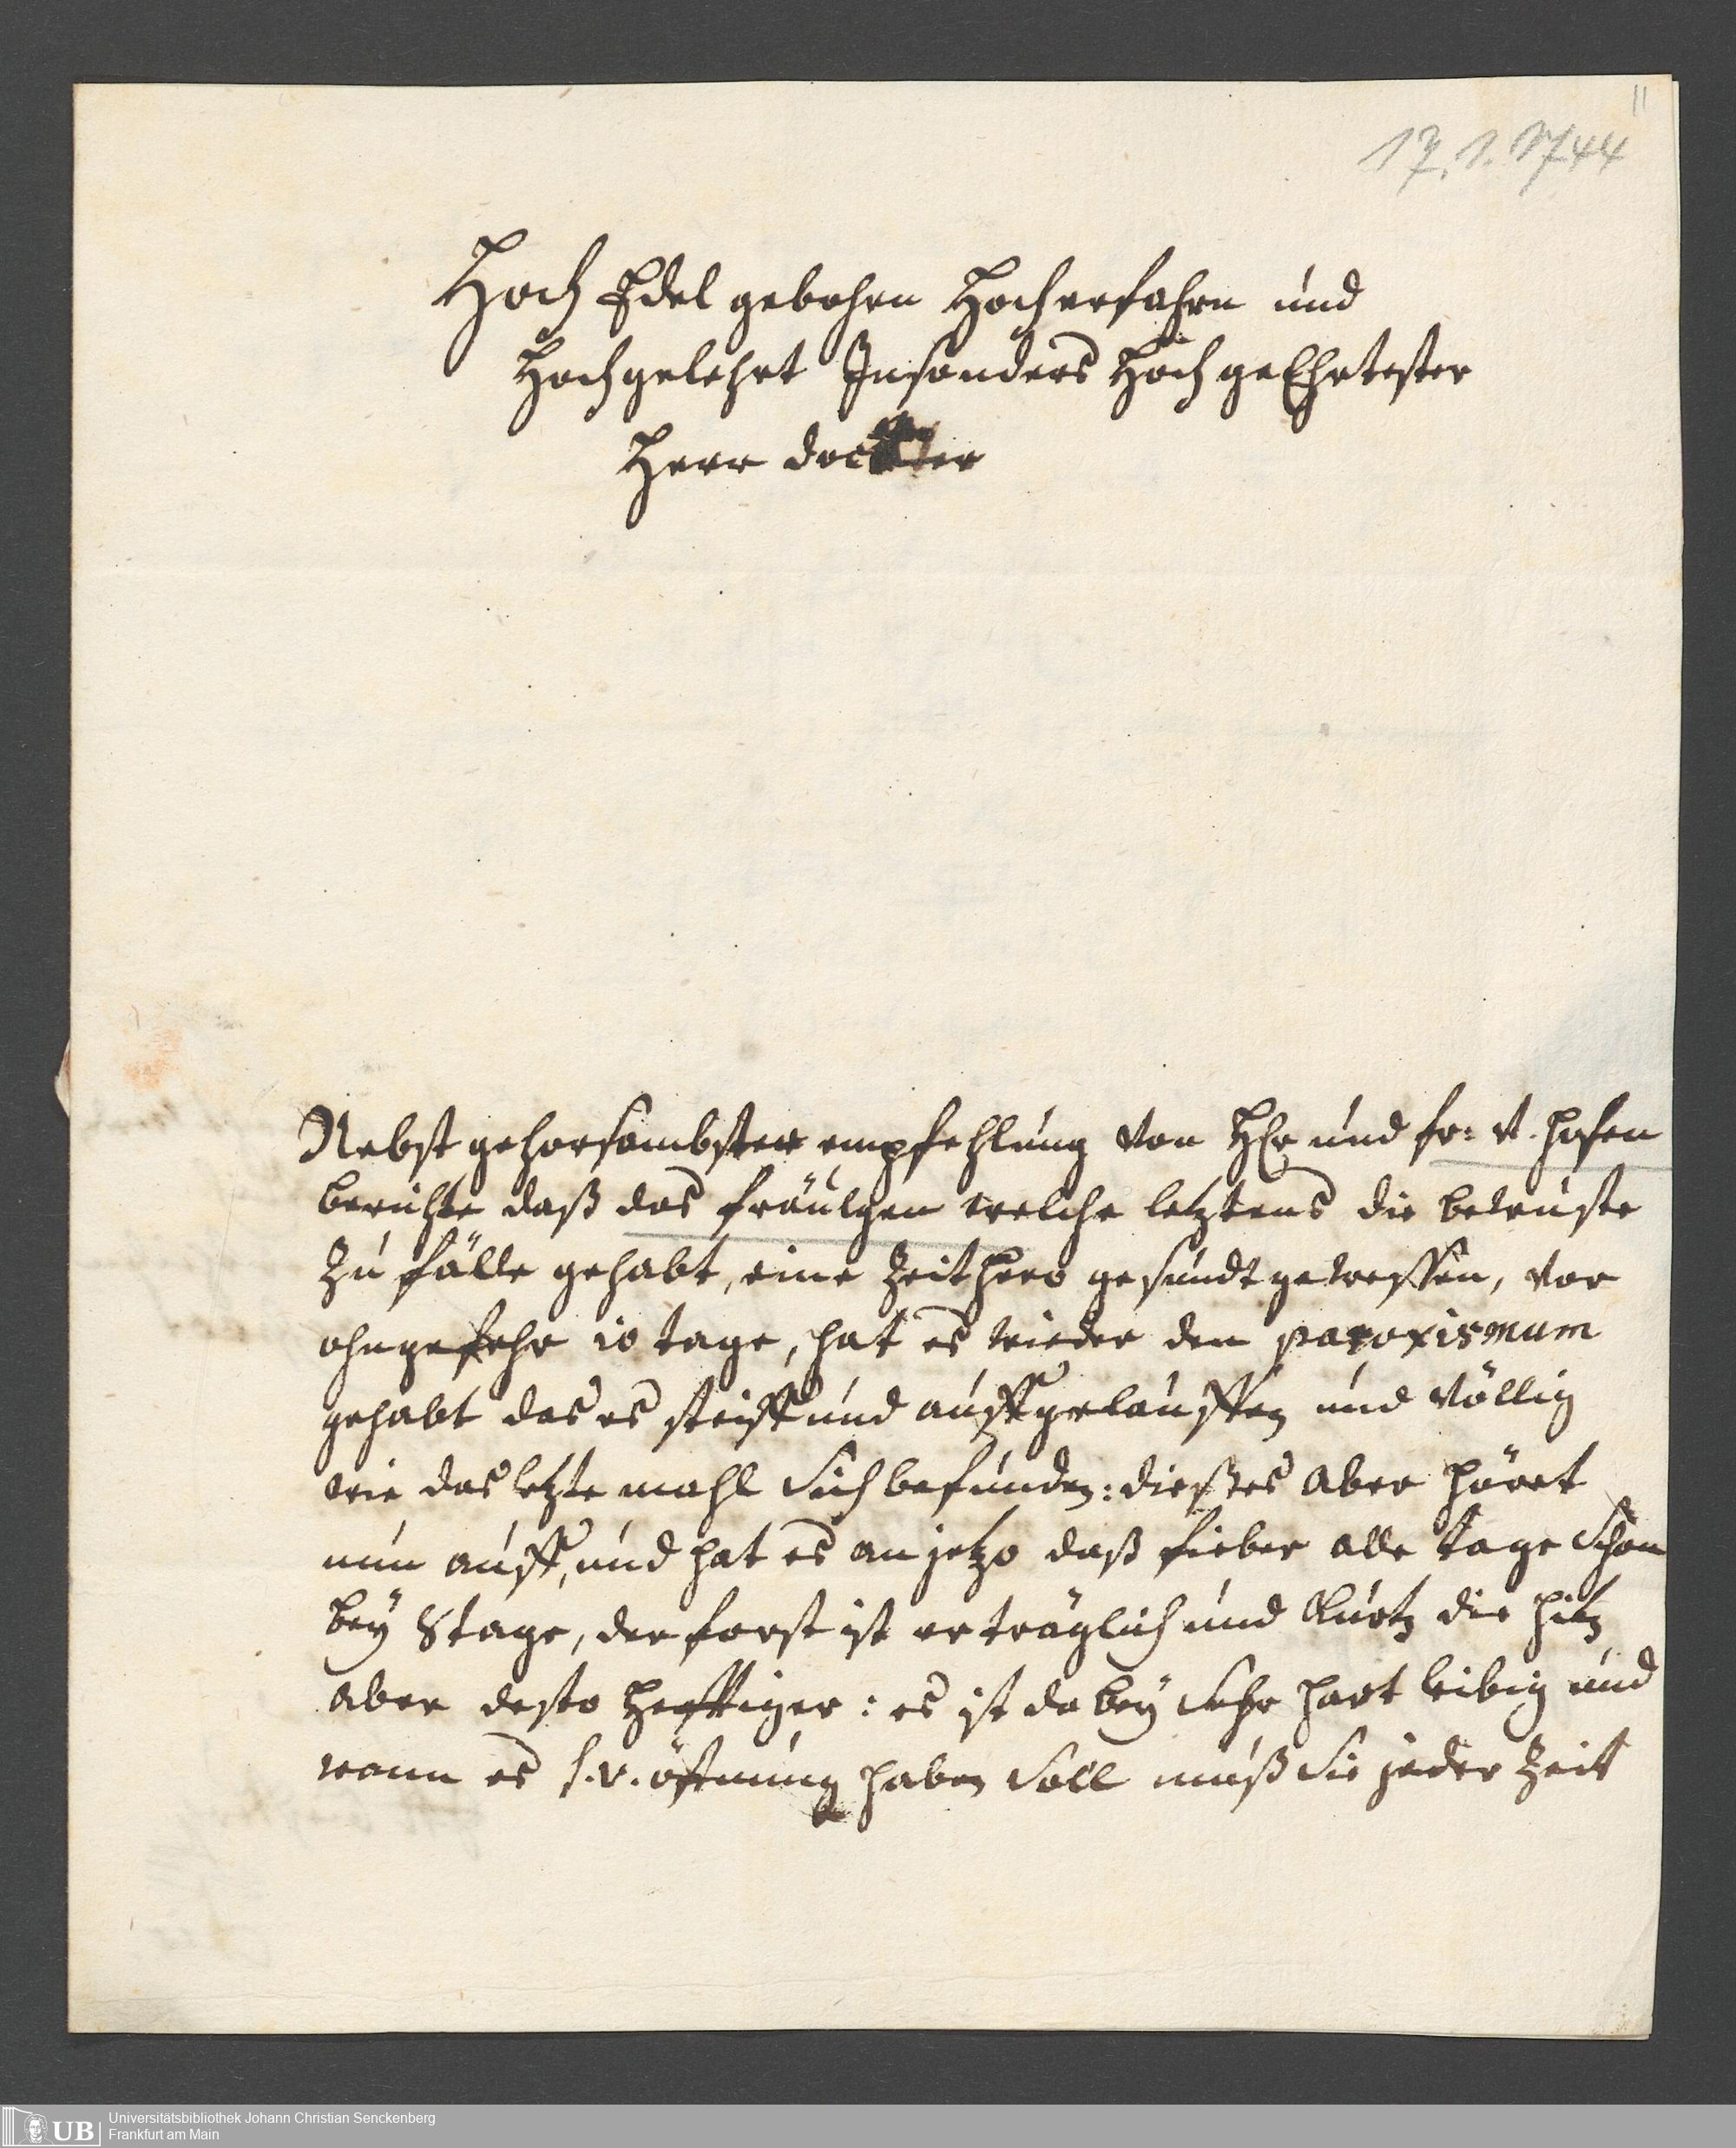 11
17.1.1744
Hoch Edel gebohrn Hocherfahrn und
Hochgelehrt Insonders Hoch geEhrtester
Herr docter
Nebst gehorsambster empfehlung von Hr und fr: v. hosen
berichte daß das fräulgen welche letztens die bewuste
Zu fälle gehabt, eine Zeithero gesundt gewessen, vor
ohngefehr 10 tage, hat es wieder den paroxismum
gehabt das es steiff und auffgelauffen und völlig
wie das letzte mahl sich befunden: dießes aber höret
nun auff, und hat es an jetzo daß fieber alle tage schon
bey 8 tage, der forst ist erträglich und kurtz die hitz
aber desto hefftiger: es ist da bey sehr hart leibig und
wann es s.v. öffnung haben soll muß sie jeder Zeit
UB
Universitätsbibliothek Johann Christian Senckenberg
Frankfurt am Main